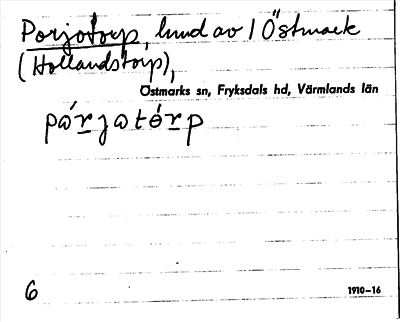 Porjotorp, lund av 1 Östmark
(Hollandstorp),
Östmarks sn, Fryksdals hd, Värmlands län
pɷ́rjɷtórp
6
1910-16